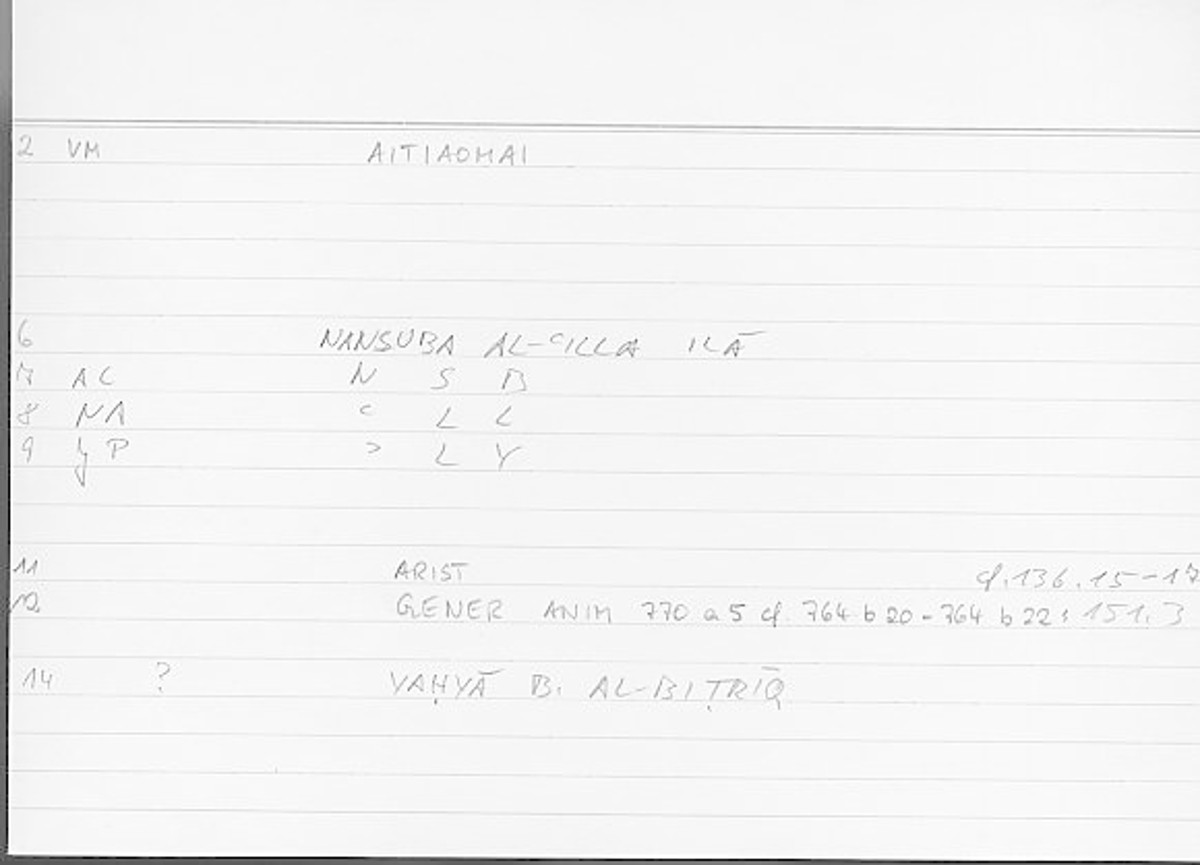 2 VM AITIAOMAI
6 NANSUBA AL-ʿILLA ILĀ
7 AC N S B
8 NA ʿ L L
9 P ʾ L Y
11 ARIST cf. 136.15-17
12 GENER ANIM 770 a 5 cf. 764 b 20 - 764 b 22: 151.3
14 ? YAḤYĀ B. AL-BIṬRĪQ